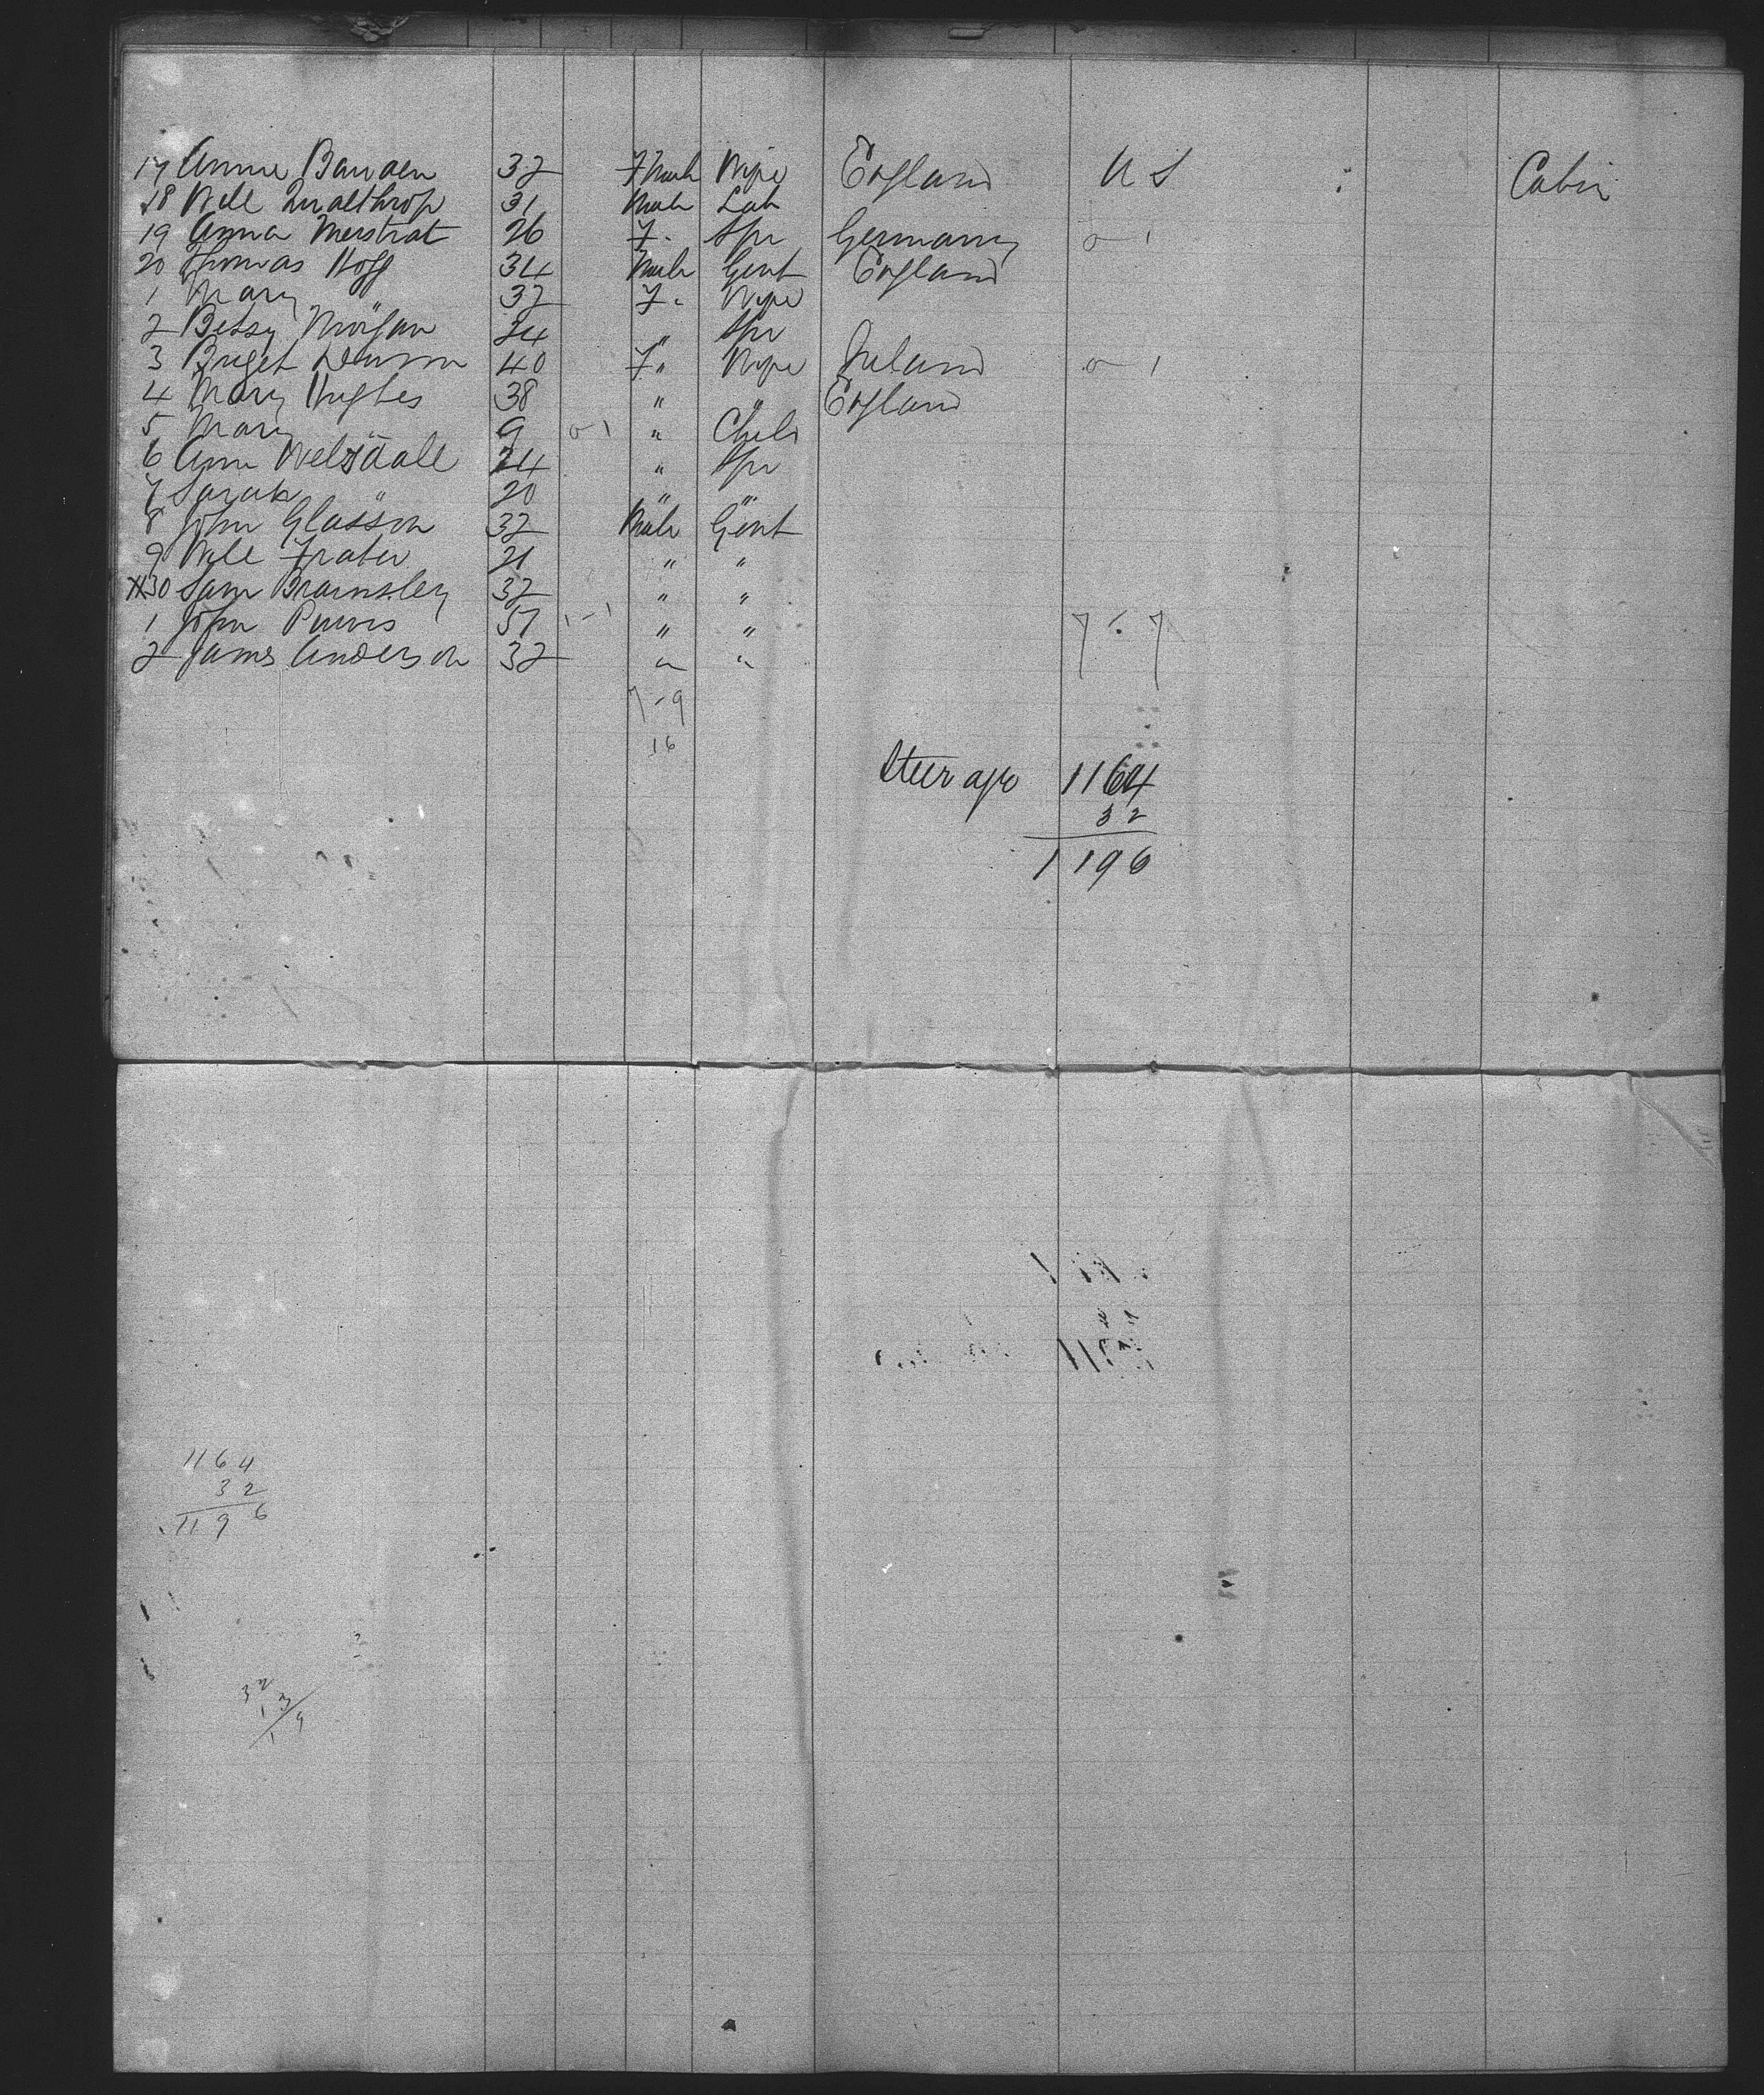 17 Annie Bawden 32 Female Wife England U S Cabin
18 Will 31 Male Lab
19 Anna 26 F. Spr Germany 0 1
20 Thomas Hoff 34 Male Gent England
1 Mary " 32 F. Wife
2 Betsy Morgan 24 " Spr
3 Briget 40 F. Wife Ireland 0 1
4 Mary Hughes 38 " " England
5 Mary " 9 0-1 " Child
6 Ann Welsdall 24 " Spr
7 Sarah " 20 " "
8 John Glasson 32 Male Gent
9 Will Frater 21 " "
30 Sam Bramsley 32 " "
1 John Purvis 57 1-1 " " 7 . 7
2 James Anderson 32 " "
7-9
16
Steerage 1164
32
1196
1164
32
1196
32
13
19